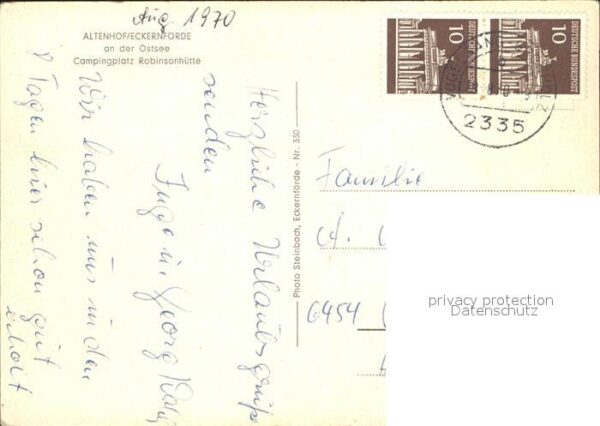 Aug 1970
ALTENHOF/ECKERNFÖRDE
an der Ostsee
Campingplatz Robinsonhütte
Herzliche Urlaubsgrüße
senden
Inge u. Georg
Wir haben uns in den
8 Tagen hier schon gut
erholt
Photo Steinbach, Eckernförde - Nr. 330
10
DEUTSCHE BUNDESPOST
10
DEUTSCHE BUNDESPOST
2335
Familie
A.
6454
privacy protection
Datenschutz